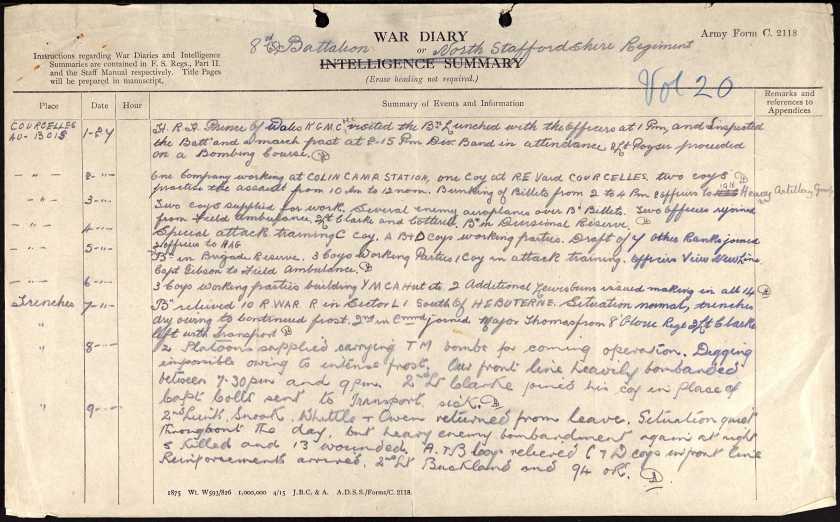 WAR DIARY
or
INTELLIGENCE SUMMARY
(Erase heading not required.)
Army Form C. 2118
8th Battalion North Staffordshire Regiment
Instructions regarding War Diaries and Intelligence
Summaries are contained in F. S. Regs., Part II.
and the Staff Manual respectively. Title Pages
will be prepared in manuscript.
Vol 20
Place Date Hour Summary of Events and Information Remarks and references to Appendices
COURCELLES AU-BOIS 1-2-17 H.R.H. Prince of Wales K.G. M.C. visited the Bn Lunched with the Officers at 1 Pm, and Inspected
the Batt and a march past at 2-15 Pm Div Band in attendance 2/Lt Poyser proceeded
on a Bombing Course.
2 One Company working at COLIN CAMP STATION, one Coy at R E Yard COURCELLES. two coys
practice the assault from 10 Am to 12 noon. Bunking of Billets from 2 to 4 Pm 2 officers to Heavy Artillery Group
3 Two coys supplied for work. Several enemy aeroplanes over Bn Billets. Two Officers rejoined
from Field Ambulance, 2/Lt Clarke and Cotterill. Bn in Divisional Reserve.
4 Special attack training C Coy. A B & D coys working parties. Draft of 7 other Ranks joined
2 officers to HAG
5 Bn in Brigade Reserve. 3 Coys Working Parties 1 Coy in attack training. Officers View New Line
Capt Gibson to Field Ambulance.
6 3 Coys working parties building YMCA Hut etc 2 Additional Lewis Guns issued making in all 14
Trenches 7 Bn relieved 10 R. WAR. R in Sector L1 South of HEBUTERNE. Situation normal, trenches
dry owing to continued frost. 2nd in Cmmd joined Major Thomas from 8th Glouc Regt 2/Lt Clarke
left with Transport
8 2 Platoons supplied carrying TM bombs for coming operation. Digging
impossible owing to intense frost. Our front line heavily bombarded
between 7-30 pm and 9 pm. 2nd Lt Clarke joined his coy in place of
Capt Colls sent to Transport sick.
9 2nd Lieut. Snook. Whittle & Owen returned from leave. Situation quiet
throughout the day, but heavy enemy bombardment again at night
5 killed and 13 wounded. A & B Coys relieved C & D coys in front line
Reinforcements arrived. 2nd Lt Buckland and 94 o.R.
1875 Wt. W593/826 1,000,000 4/15 J.B.C. & A. A.D.S.S./Forms/C. 2118.